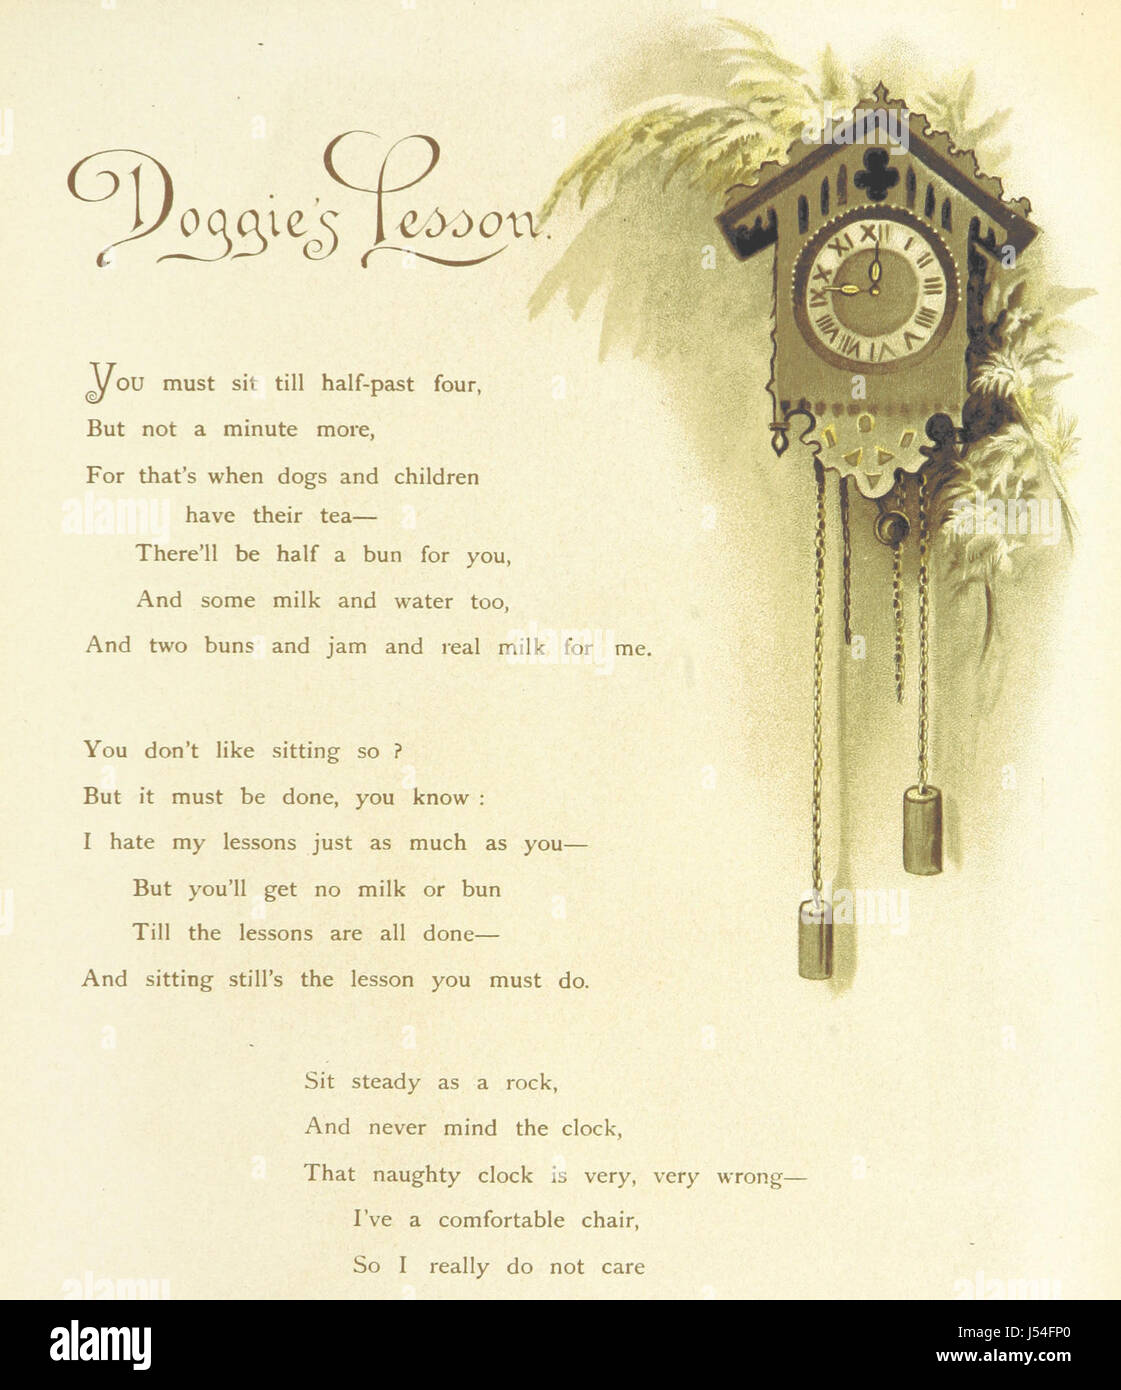 Doggie's Lesson.
You must sit till half-past four,
But not a minute more,
For that's when dogs and children
have their tea—
There'll be half a bun for you,
And some milk and water too,
And two buns and jam and real milk for me.
You don't like sitting so ?
But it must be done, you know :
I hate my lessons just as much as you—
But you'll get no milk or bun
Till the lessons are all done—
And sitting still's the lesson you must do.
Sit steady as a rock,
And never mind the clock,
That naughty clock is very, very wrong—
I've a comfortable chair,
So I really do not care
XII I II III IIII V VI VII VIII IX X XI
alamy
alamy stock photo
J54FP0
www.alamy.com